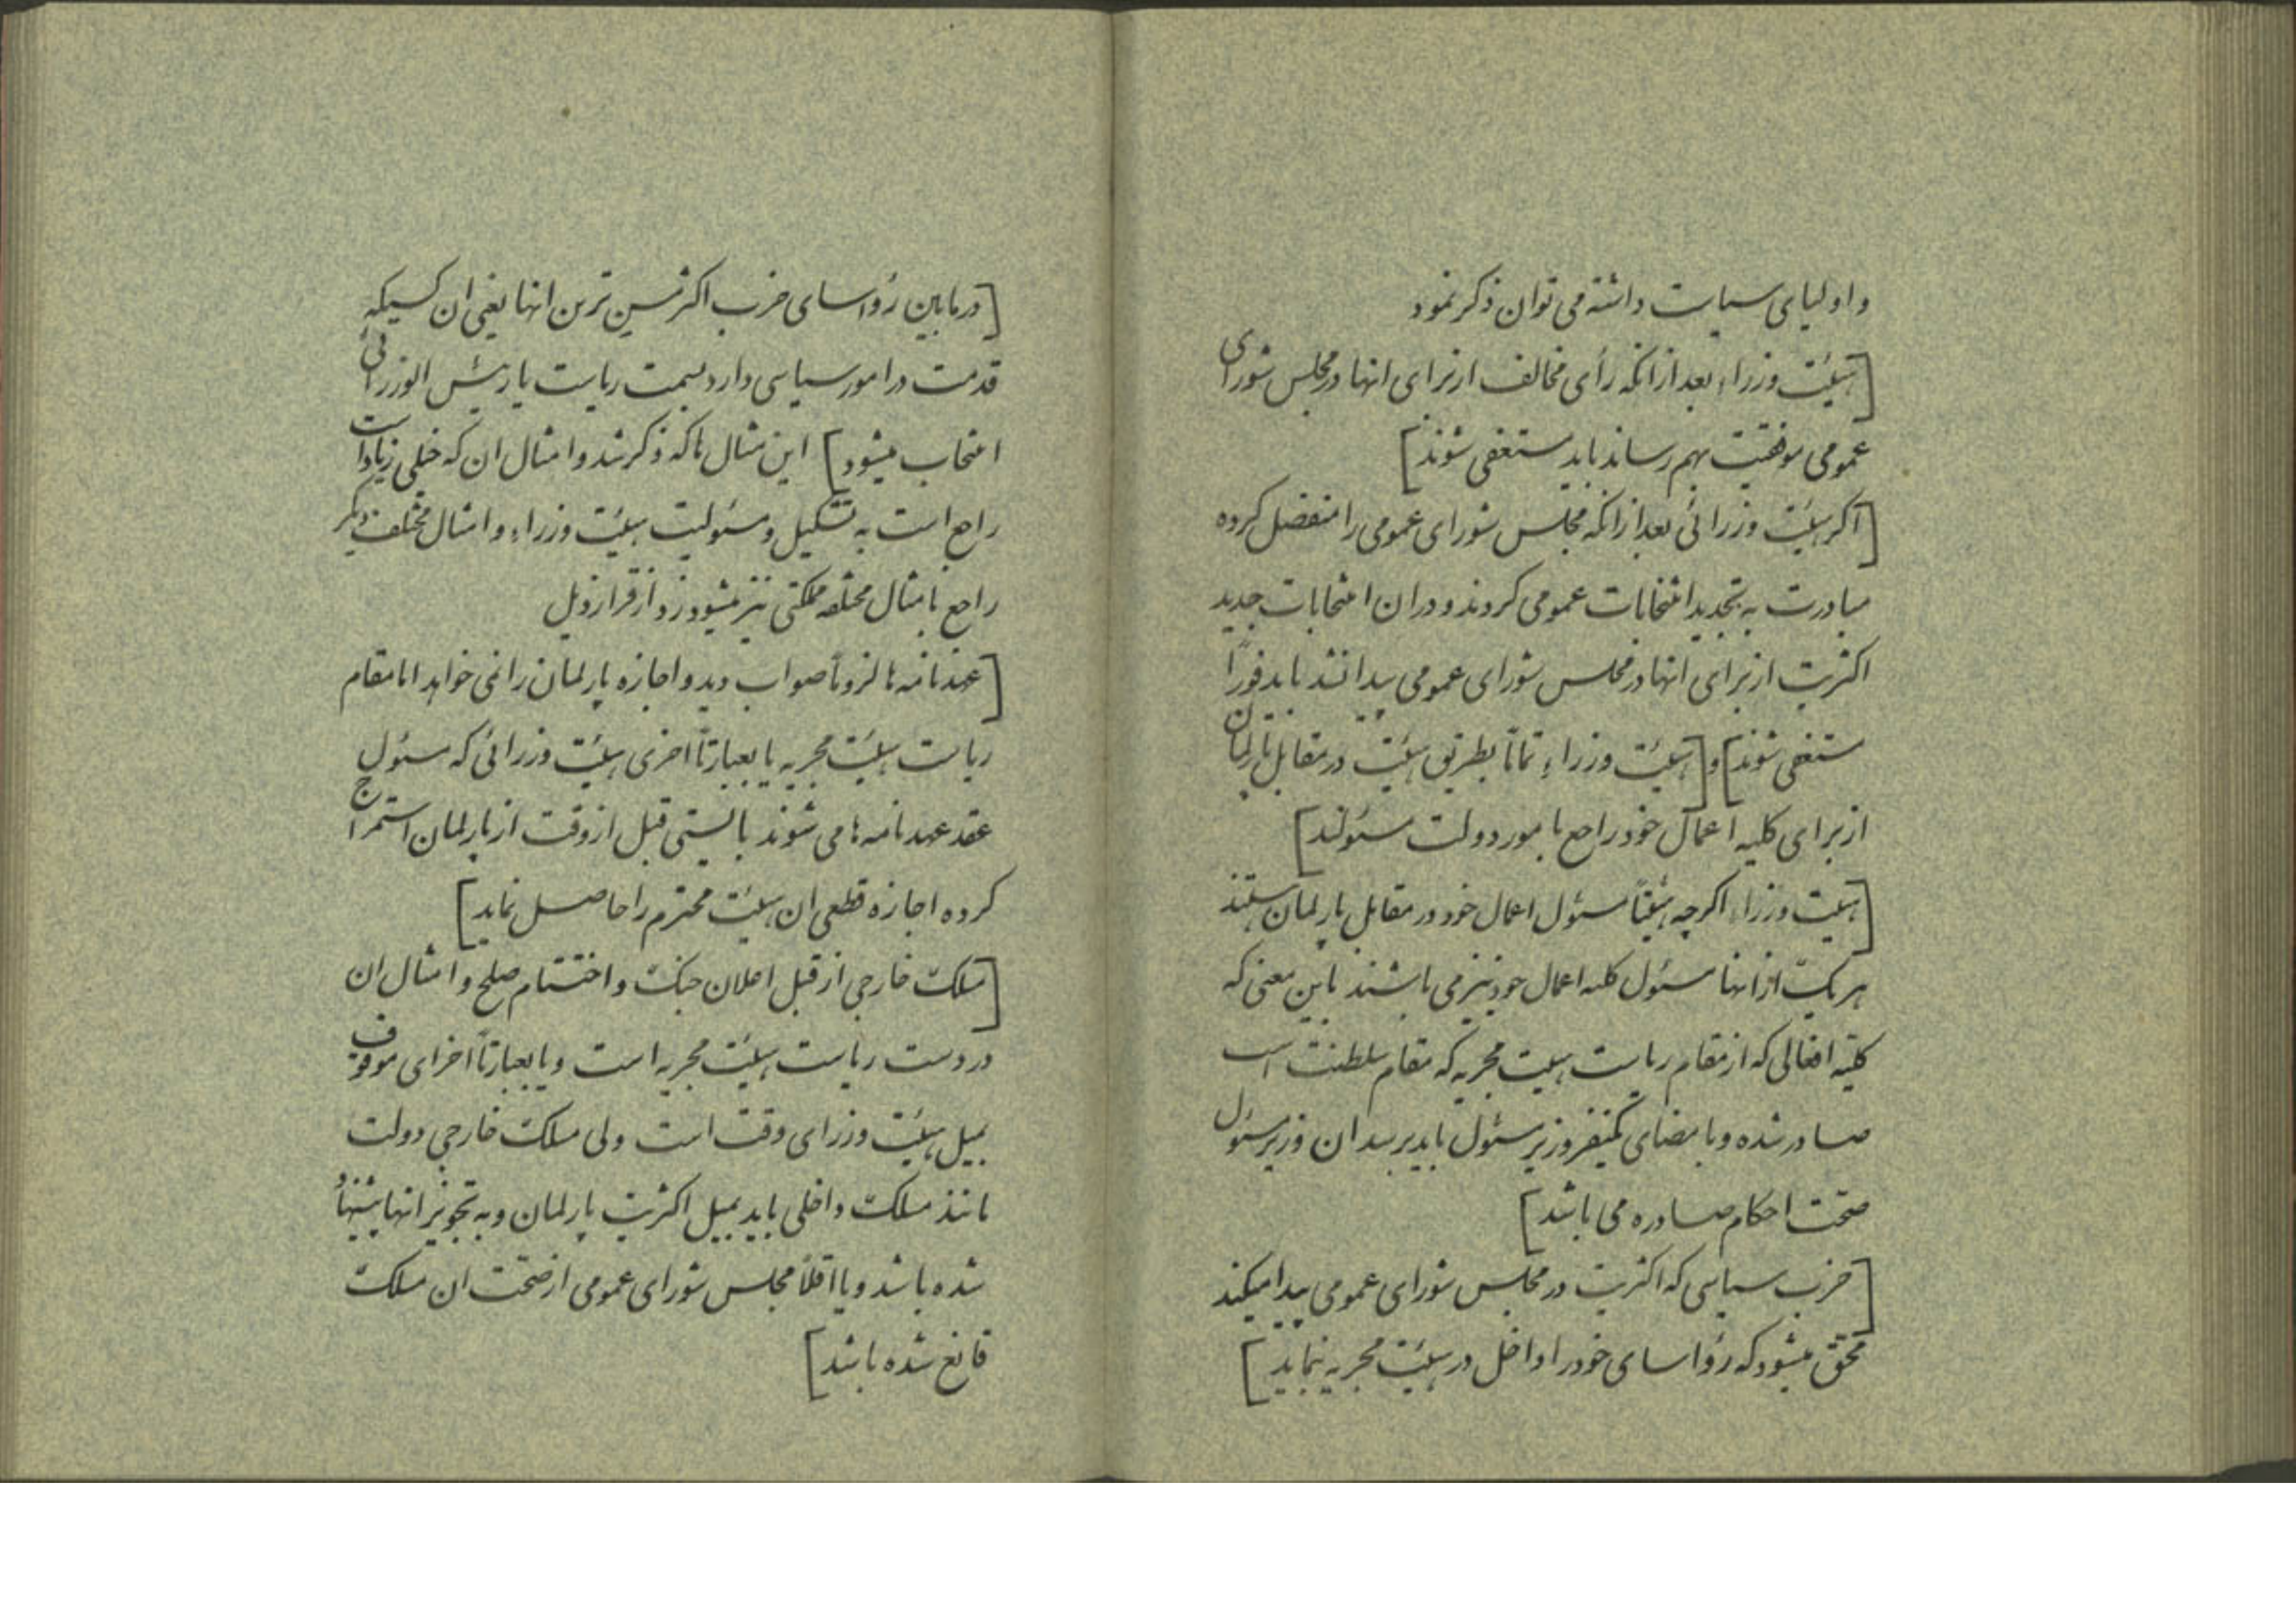 و اولیای سیاست داشته می توان ذکر نمود
[هیئت وزراء بعد از انکه رأی مخالف از برای انها در مجلس شورای
عمومی موفقیت بهم رساند باید مستعفی شوند]
[اکر هیئت وزرائی بعد از انکه مجلس شورای عمومی را منفصل کرده
مبادرت به تجدید انتخابات عمومی کردند و در ان انتخابات جدید
اکثریت از برای انها در مجلس شورای عمومی پیدا نشد باید فوراً
مستعفی شوند] و [هیئت وزراء تماماً بطریق هیئت در مقابل پارلمان
از برای کلیه اعمال خود راجع بامور دولت مسئولند]
[هیئت وزراء اکرچه هیئتاً مسئول اعمال خود در مقابل پارلمان هستند
هر یک از انها مسئول کلیه اعمال خود نیز می باشند باین معنی که
کلیّه افعالی که از مقام ریاست هیئت مجریه که مقام سلطنت است
صادر شده و بامضای یکنفر وزیر مسئول باید برسد ان وزیر مسئول
صحّت احکام صادره می باشد]
[حزب سیاسی که اکثریت در مجلس شورای عمومی پیدا میکند
محقق میشود که رؤسای خود را داخل در هیئت مجریه نماید]
[در مابین رؤسای حزب اکثر مسن ترین انها یعنی ان کسیکه
قدمت در امور سیاسی دارد بسمت ریاست یا رئیس الوزرائی
انتخاب میشود] این مثال ها که ذکر شد و امثال ان که خیلی زیاد است
راجع است به تشکیل و مسئولیت هیئت وزراء و امثال مختلف دیگر
راجع بامثال مختلفه مملکتی نیز میشود زد از قرار ذیل
[عهدنامه ها لزوماً صواب دید و اجازه پارلمان را نمی خواهد اما مقام
ریاست هیئت مجریه یا بعبارتاً اخری هیئت وزرائی که مسئول
عقد عهدنامه ها می شوند بایستی قبل از وقت از پارلمان استمزاج
کرده اجازه قطعی ان هیئت محترم را حاصل نماید]
[مسلک خارجی از قبیل اعلان جنک و اختتام صلح و امثال ان
در دست ریاست هیئت مجریه است و یا بعبارتاً اخرای موقوف
بمیل هیئت وزرای وقت است ولی مسلک خارجی دولت
مانند مسلک داخلی باید بمیل اکثریت پارلمان و به تجویز انها پیشنهاد
شده باشد و یا اقلاً مجلس شورای عمومی از صحّت ان مسلک
قانع شده باشد]